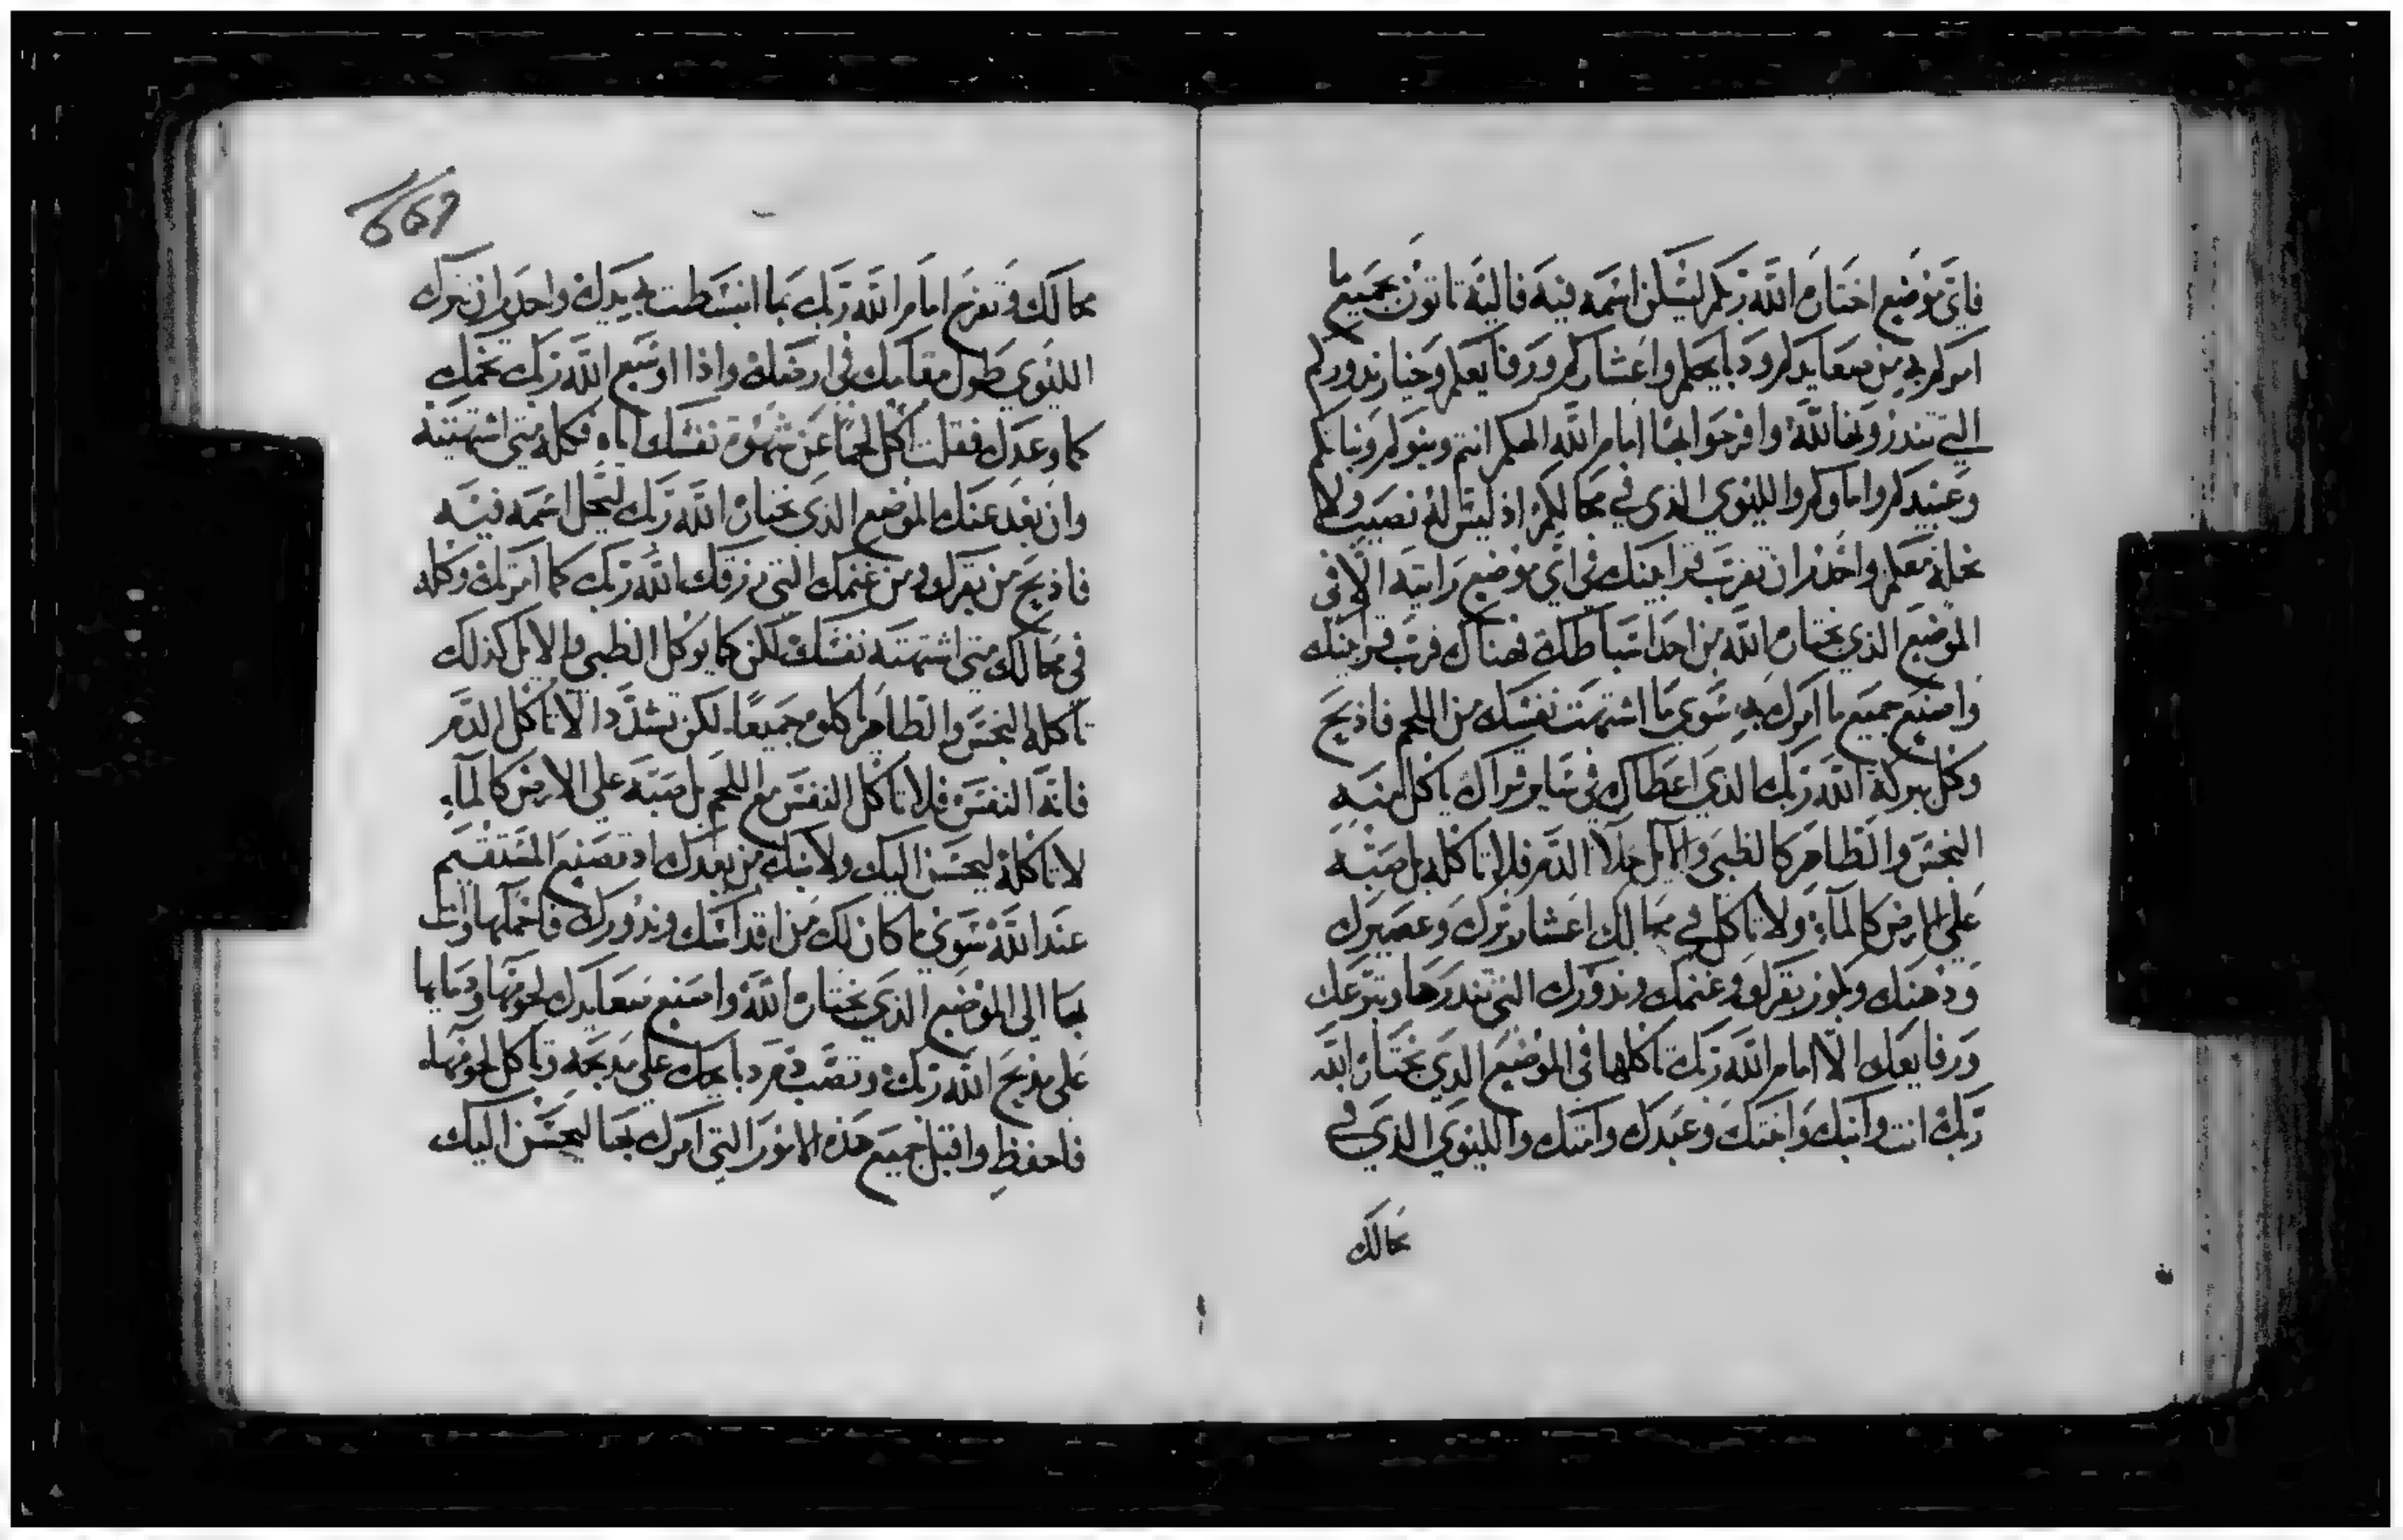 فاي موضع اختاره الله ربكم ليسكن اسمه فيه فاليه تاتون بجميع ما
امركم به من صعايدكم ودبايحكم واعشاركم ورفايعكم وخيار ندوركم
التي تندرونها لله وافرحوا بها امام الله الهكم انتم وبنوكم وبناتكم
وعبيدكم واماوكم والليوي الذي في محالكم اذ ليس له نصيب ولا
نحلة معكم واحذر ان تقرب قرابينك في اي موضع راتيه الا في
الموضع الذي يختاره الله من احد اسباطك فهناك قرب قرابينك
واصنع جميع ما امرك به سوي ما اشتهت نفسك من اللحم فاذبح
وكل ببركة الله ربك الذي اعطاك في ساير قراك ياكل منه
النجس والطاهر كالظبي والايل خلا الدم فلا تاكله بل صبه
علي الارض كالماء ولا تاكل في محالك اعشار برك وعصيرك
ودهنك وبكور بقرك وغنمك وندورك التي تندرها وتبرعك
ورفايعك الا امام الله ربك تاكلها في الموضع الدي يختاره الله
ربك انت وابنك وابنتك وعبدك وامتك والليوي الذي في
محالك
669
محالك وتفرح امام الله ربك بما انبسطت به يدك واحدر ان تترك
الليوي طول مقامك في ارضك واذا اوسع الله ربك تخمك
كما وعدك فقلت اكل لحما عن شهوة نفسك اياه فكله متي اشتهيته
وان بعد عنك الموضع الذي يختاره الله ربك ليحل اسمه فيه
فاذبح من بقرك ومن غنمك التي رزقك الله ربك كما امرتك وكله
في محالك متي اشتهته نفسك لكن كما يوكل الظبي والايل كذلك
تاكله النجس والطاهر ياكلوه جميعا لكن تشدد الا تاكل الدم
فانه النفس فلا تاكل النفس مع اللحم بل صبه علي الارض كالماء
لا تاكله ليحسن اليك ولابنك من بعدك اذ تصنع المستقيم
عند الله سوي ما كان لك من اقداسك وندورك فاحملها وات
بها الي الموضع الذي يختاره الله واصنع صعايدك لحومها ودمايها
علي مذبح الله ربك وتصب دم دبايحك علي مدبحه وتاكل لحومها
فاحفظ واقبل جميع هذه الامور التي امرك بها ليحسن اليك